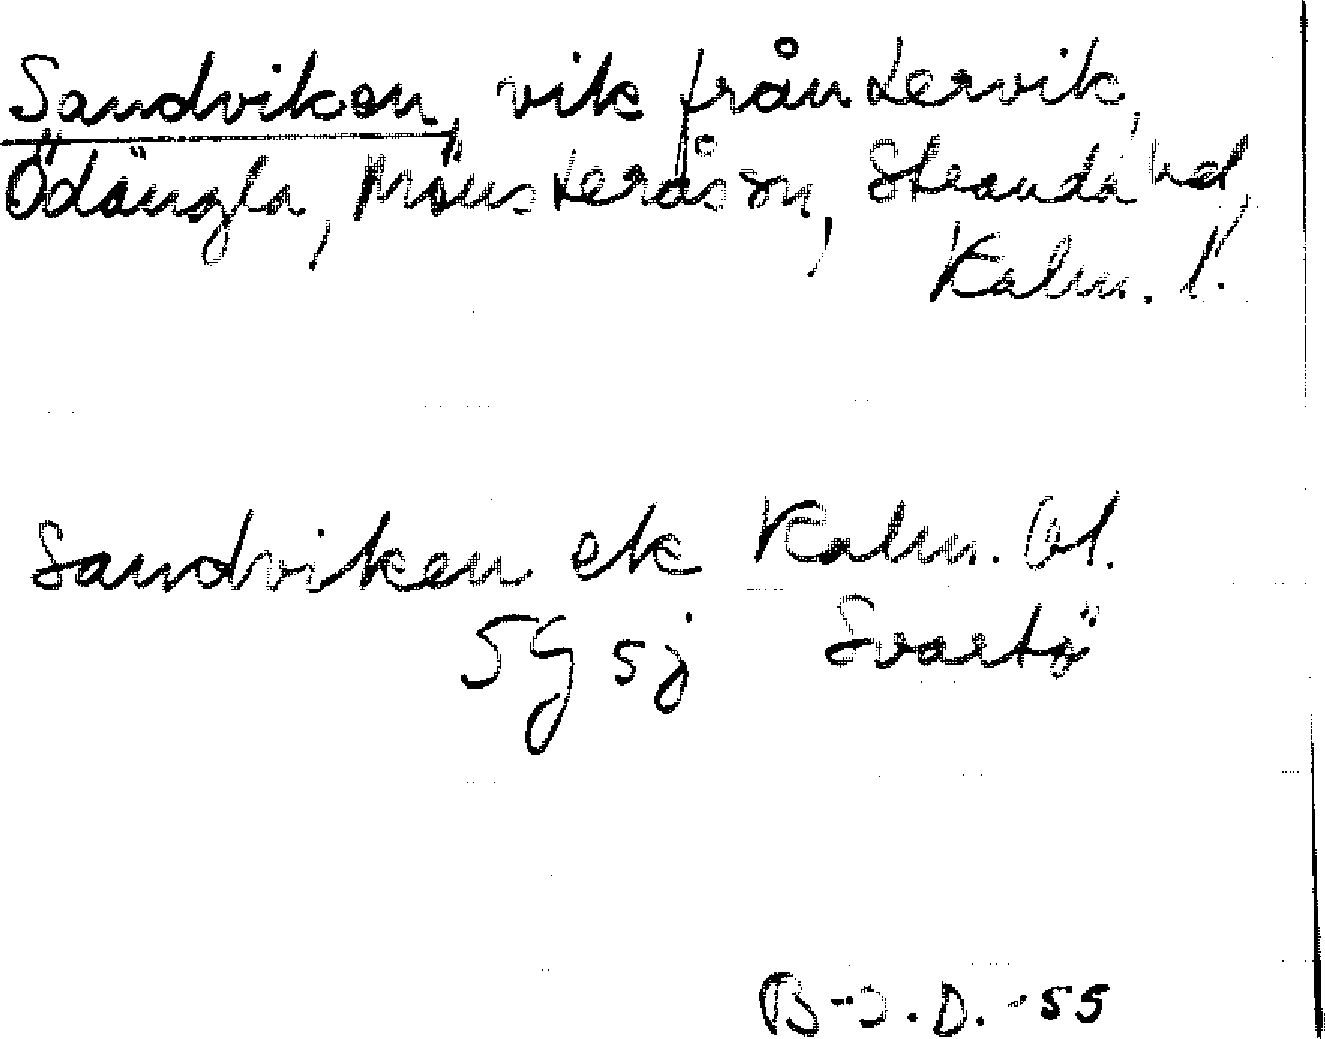 Sandviken, vik från Lervik,
Ödängla, Mönsterås sn, Stranda hd,
Kalm. l.
Sandviken ek Kalm. bl.
5G 5j Svartö
B-J.D.-55